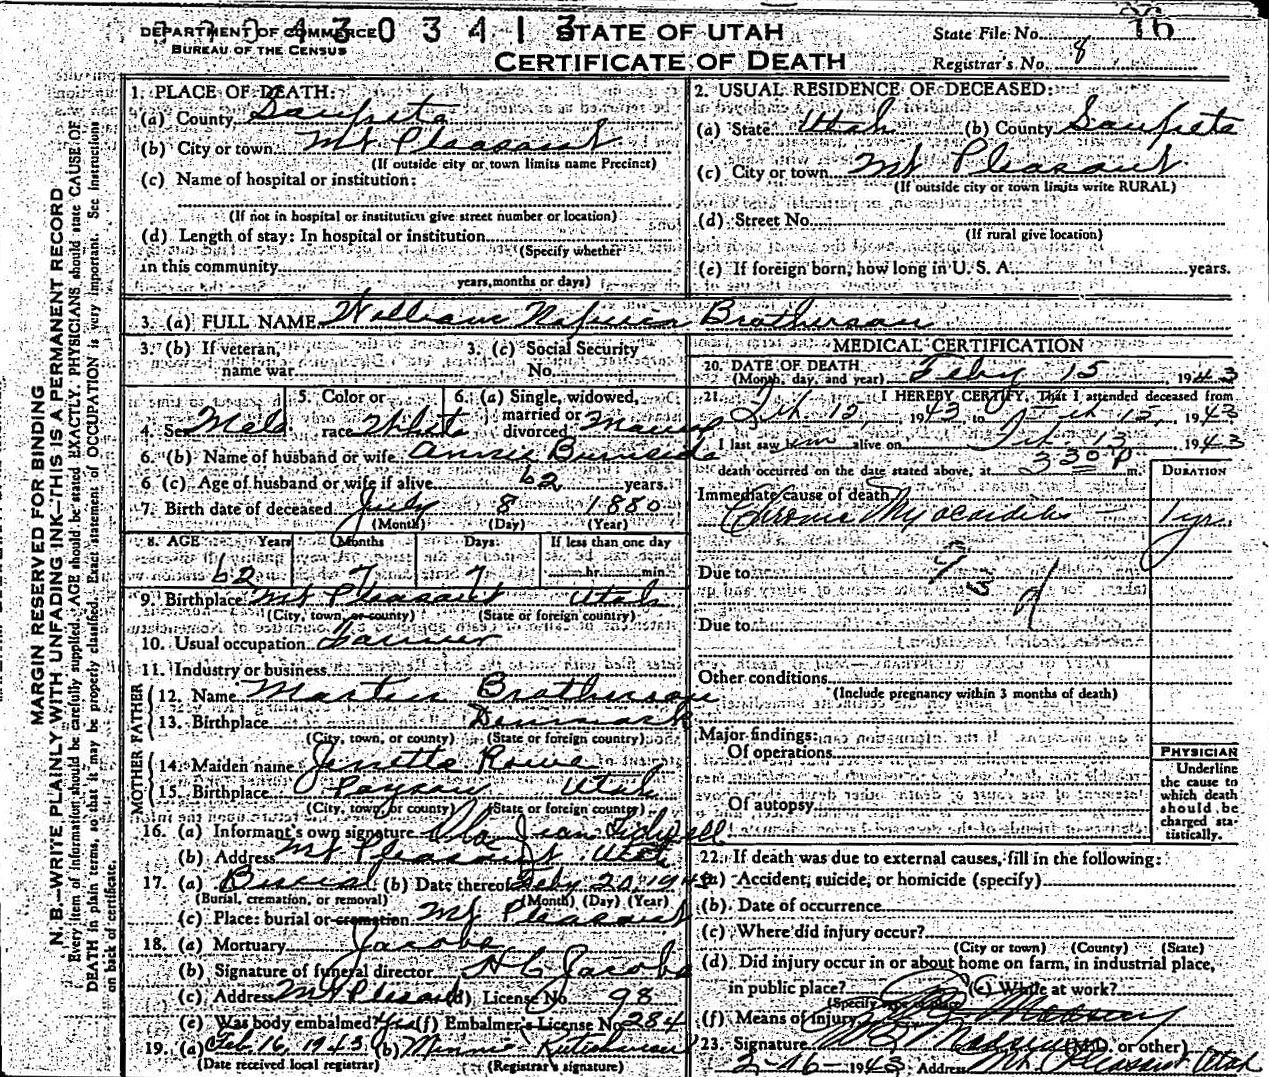 DEPARTMENT OF COMMERCE
BUREAU OF THE CENSUS
0 3 4 1 3
STATE OF UTAH
CERTIFICATE OF DEATH
State File No. 16
Registrar's No. 8
MARGIN RESERVED FOR BINDING
N. B.—WRITE PLAINLY WITH UNFADING INK—THIS IS A PERMANENT RECORD
Every item of information should be carefully supplied. AGE should be stated EXACTLY. PHYSICIANS should state CAUSE OF
DEATH in plain terms, so that it may be properly classified. Exact statement of OCCUPATION is very important. See instructions
on back of certificate.
1. PLACE OF DEATH:
(a) County Sanpete
(b) City or town Mt Pleasant
(If outside city or town limits name Precinct)
(c) Name of hospital or institution:
(If not in hospital or institution give street number or location)
(d) Length of stay: In hospital or institution
(Specify whether
in this community
years, months or days)
2. USUAL RESIDENCE OF DECEASED:
(a) State Utah (b) County Sanpete
(c) City or town Mt Pleasant
(If outside city or town limits write RURAL)
(d) Street No.
(If rural give location)
(e) If foreign born, how long in U. S. A. years.
3. (a) FULL NAME William Brotherson
3. (b) If veteran,
name war
3. (c) Social Security
No.
4. Sex Male
5. Color or
race White
6. (a) Single, widowed,
married or
divorced Married
6. (b) Name of husband or wife Annie Burnside
6 (c) Age of husband or wife if alive 62 years.
7. Birth date of deceased July 8 1880
(Month) (Day) (Year)
8. AGE Years Months Days If less than one day
62 7 7 hr. min.
9. Birthplace Mt Pleasant Utah
(City, town, or county) (State or foreign country)
10. Usual occupation Farmer
11. Industry or business
FATHER
12. Name Martin Brotherson
13. Birthplace Denmark
(City, town, or county) (State or foreign country)
MOTHER
14. Maiden name Jenette Rowe
15. Birthplace Payson Utah
(City, town, or county) (State or foreign country)
16. (a) Informant's own signature Jean
(b) Address Mt Pleasant, Utah
17. (a) Burial (b) Date thereof Feby 20, 1943
(Burial, cremation, or removal) (Month) (Day) (Year)
(c) Place: burial or cremation Mt Pleasant
18. (a) Mortuary Jacobs
(b) Signature of funeral director Jacobs
(c) Address Mt Pleasant (d) License No. 98
(e) Was body embalmed? Yes (f) Embalmer's License No. 284
19. (a) Feb. 16, 1943 (b) Minnie
(Date received local registrar) (Registrar's signature)
MEDICAL CERTIFICATION
20. DATE OF DEATH
(Month, day, and year) Feby 15, 1943
21. I HEREBY CERTIFY, That I attended deceased from
Feb 15, 1943, to Feb 15, 1943
I last saw him alive on Feb 13 1943
death occurred on the date stated above, at 3 30 P m.
DURATION
Immediate cause of death
Chronic Myocarditis — 1 yr.
Due to
Due to
Other conditions
(Include pregnancy within 3 months of death)
Major findings:
Of operations
Of autopsy
PHYSICIAN
Underline
the cause to
which death
should be
charged sta-
tistically.
22. If death was due to external causes, fill in the following:
(a) Accident, suicide, or homicide (specify)
(b) Date of occurrence
(c) Where did injury occur?
(City or town) (County) (State)
(d) Did injury occur in or about home on farm, in industrial place,
in public place? (e) While at work?
(Specify type of place)
(f) Means of injury
23. Signature Madsen (M.D. or other)
2-16-1943 Address Mt. Pleasant Utah